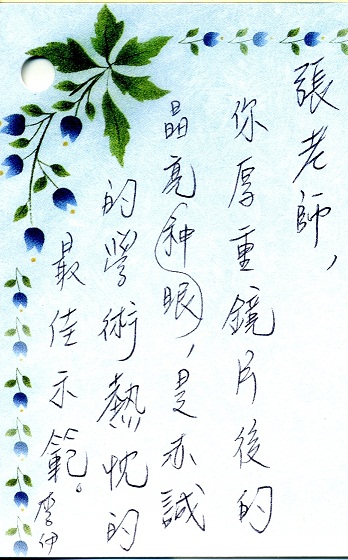 張老師，
你厚重鏡片後的
晶亮神眼，是赤誠
的學術熱忱的
最佳示範。
李伊